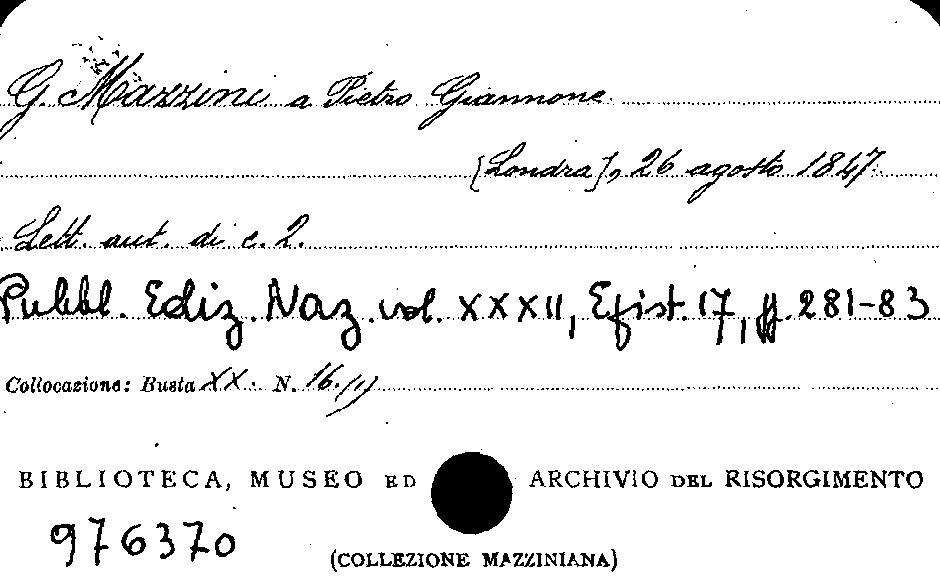 G. Mazzini a Pietro Giannone.
[Londra], 26 agosto 1847.
Lett. aut. di c. 2.
Pubbl. Ediz. Naz. vol. XXXII, Epist. 17, pp. 281-83
Collocazione: Busta XX. N. 16./1)
BIBLIOTECA, MUSEO ED ARCHIVIO DEL RISORGIMENTO
976370
(COLLEZIONE MAZZINIANA)